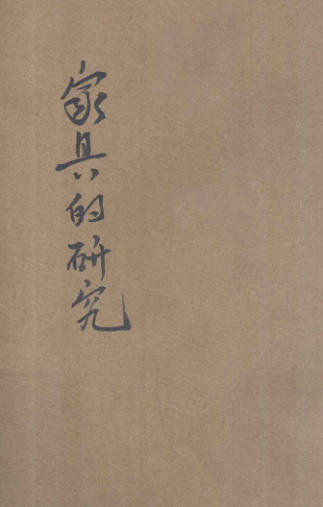 家具的研究